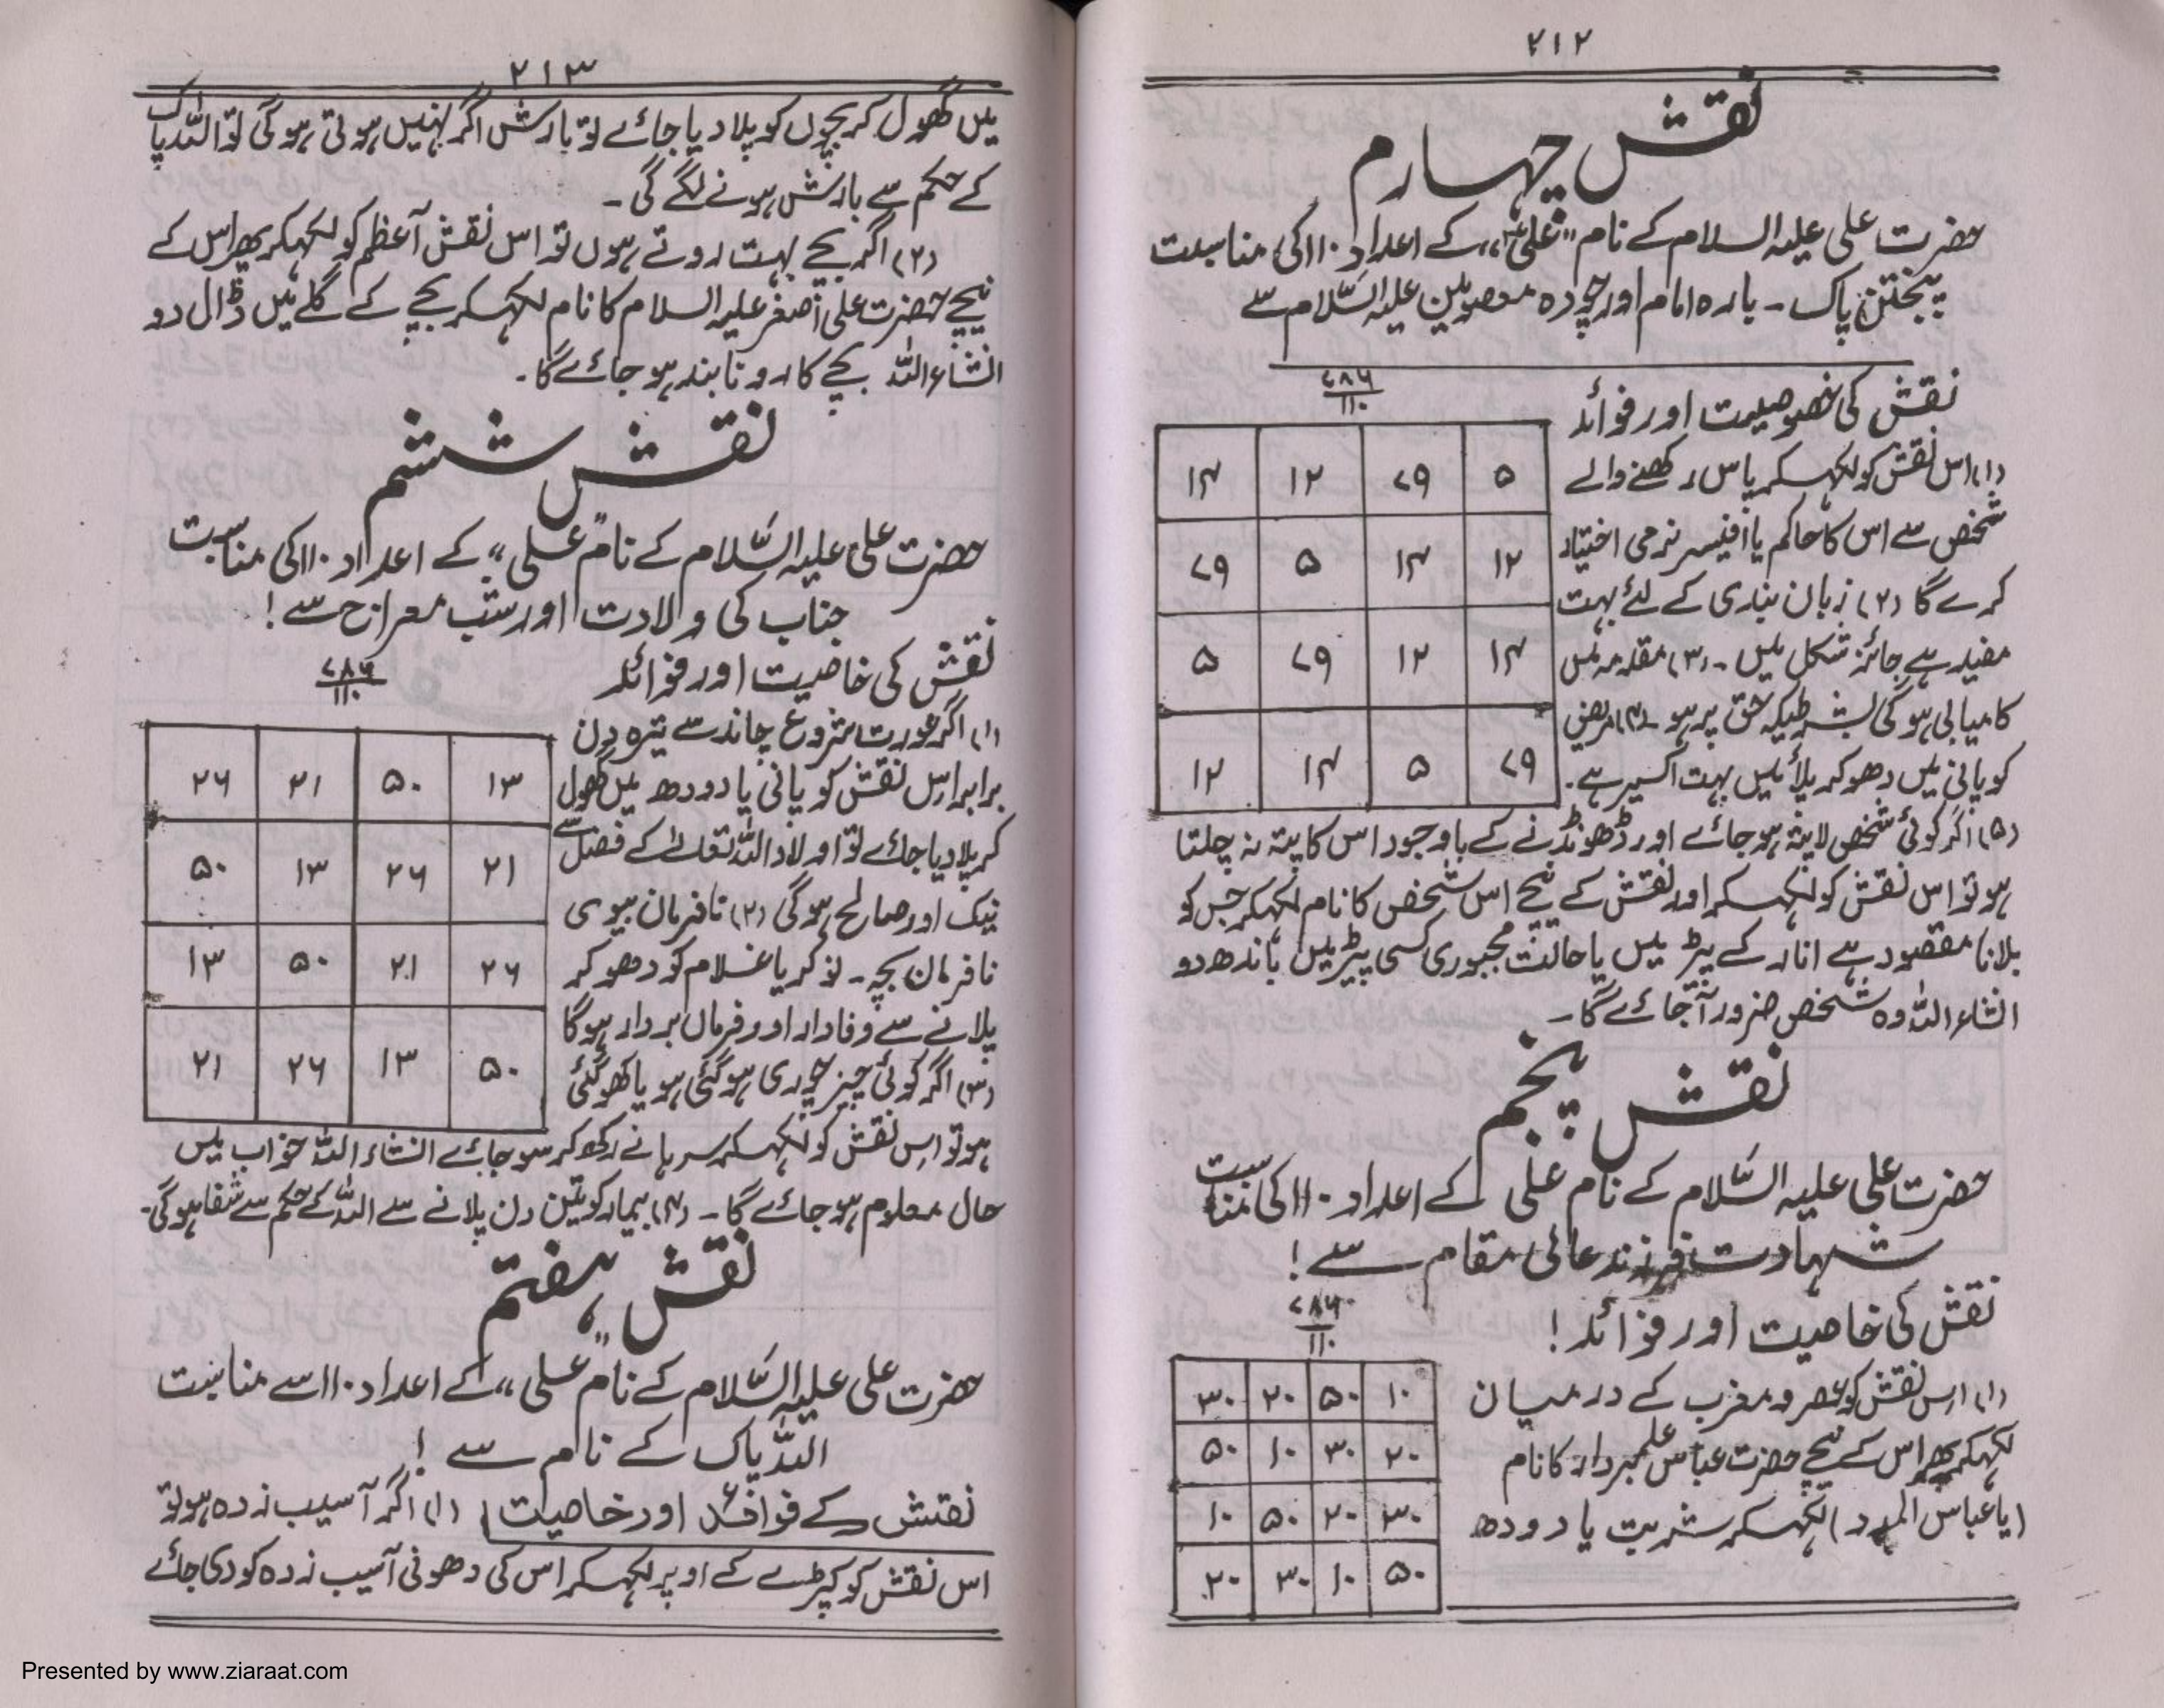 ۲۱۲
نقش چہارم
حضرت علی علیہ السلام کے نام "علی" کے اعداد ۱۱۰ کی مناسبت
پنجتن پاک ۔ بارہ امام اور چودہ معصومین علیہ السّلام سے
نقش کی خصوصیت اور فوائد
۷۸۶
۱۱۰
(۱) اس نقش کو لکھکر پاس رکھنے والے
شخص سے اس کا حاکم یا افیسر نرمی اختیار
کرے گا (۲) زبان بندی کے لئے بہت
مفید ہے جائز شکل میں ۔ (۳) مقدمہ میں
کامیابی ہوگی بشرطیکہ حق پر ہو ۔ (۴) مریض
کو پانی میں دھوکر پلائیں بہت اکسیر ہے.
۵ ۷۹ ۱۲ ۱۴
۱۲ ۱۴ ۵ ۷۹
۱۴ ۱۲ ۷۹ ۵
۷۹ ۵ ۱۴ ۱۲
(۵) اگر کوئی شخص لاپتہ ہو جائے اور ڈھونڈنے کے باوجود اس کا پتہ نہ چلتا
ہو تو اس نقش کو لکھکر اور نقش کے نیچے اس شخص کا نام لکھکر جس کو
بلانا مقصود ہے انار کے پیڑ میں یا حالت مجبوری کسی پیڑ میں باندھ دو
انشاء اللہ وہ شخص ضرور آجائے گا ۔
نقش پنجم
حضرت علی علیہ السّلام کے نام علی کے اعداد ۱۱۰ کی مناسبت
شہادت فرزند عالی مقام سے!
نقش کی خاصیت اور فوائد!
۷۸۶
۱۱۰
(۱) اس نقش کو عصر و مغرب کے درمیان
لکھکر پھر اس کے نیچے حضرت عباس علمبردار کا نام
(یا عباس المدد) لکھکر شربت یا دودھ
۱۰ ۵۰ ۲۰ ۳۰
۲۰ ۳۰ ۱۰ ۵۰
۳۰ ۲۰ ۵۰ ۱۰
۵۰ ۱۰ ۳۰ ۲۰
۲۱۳
میں گھول کر بچوں کو پلا دیا جائے تو بارش اگر نہیں ہوتی ہوگی تو اللہ پاک
کے حکم سے بارش ہونے لگے گی ۔
(۲) اگر بچے بہت روتے ہوں تو اس نقش آعظم کو لکھکر پھر اس کے
نیچے حضرت علی اصغر علیہ السلام کا نام لکھکر بچے کے گلے میں ڈال دو
انشاء اللہ بچے کا رونا بند ہو جائے گا ۔
نقش ششم
حضرت علی علیہ السّلام کے نام "علی" کے اعداد ۱۱۰ کی مناسبت
جناب کی ولادت اور شب معراج سے!
نقش کی خاصیت اور فوائد
۷۸۶
۱۱۰
(۱) اگر عورت شروع چاند سے تیرہ دن
برابر اس نقش کو پانی یا دودھ میں گھول
کر پلا دیا جائے تو اولاد اللہ تعالے کے فضل سے
نیک اور صالح ہوگی (۲) نافرمان بیوی
نافرمان بچہ ۔ نوکر یا غلام کو دھوکر
پلانے سے وفادار اور فرماں بردار ہوگا
(۳) اگر کوئی چیز چوری ہوگئی ہو یا کھو گئی
۱۳ ۵۰ ۲۱ ۲۶
۲۱ ۲۶ ۱۳ ۵۰
۲۶ ۲۱ ۵۰ ۱۳
۵۰ ۱۳ ۲۶ ۲۱
ہو تو اس نقش کو لکھکر سرہانے رکھ کر سو جائے انشاء اللہ خواب میں
حال معلوم ہو جائے گا ۔ (۴) بیمار کو تین دن پلانے سے اللہ کے حکم سے شفا ہوگی ۔
نقش ہفتم
حضرت علی علیہ السّلام کے نام "علی" کے اعداد ۱۱۰ سے مناسبت
اللہ پاک کے نام سے!
نقش کے فوائد اور خاصیت (۱) اگر آسیب زدہ ہو تو
اس نقش کو کپڑے کے اوپر لکھکر اس کی دھونی آسیب زدہ کو دی جائے
Presented by www.ziaraat.com